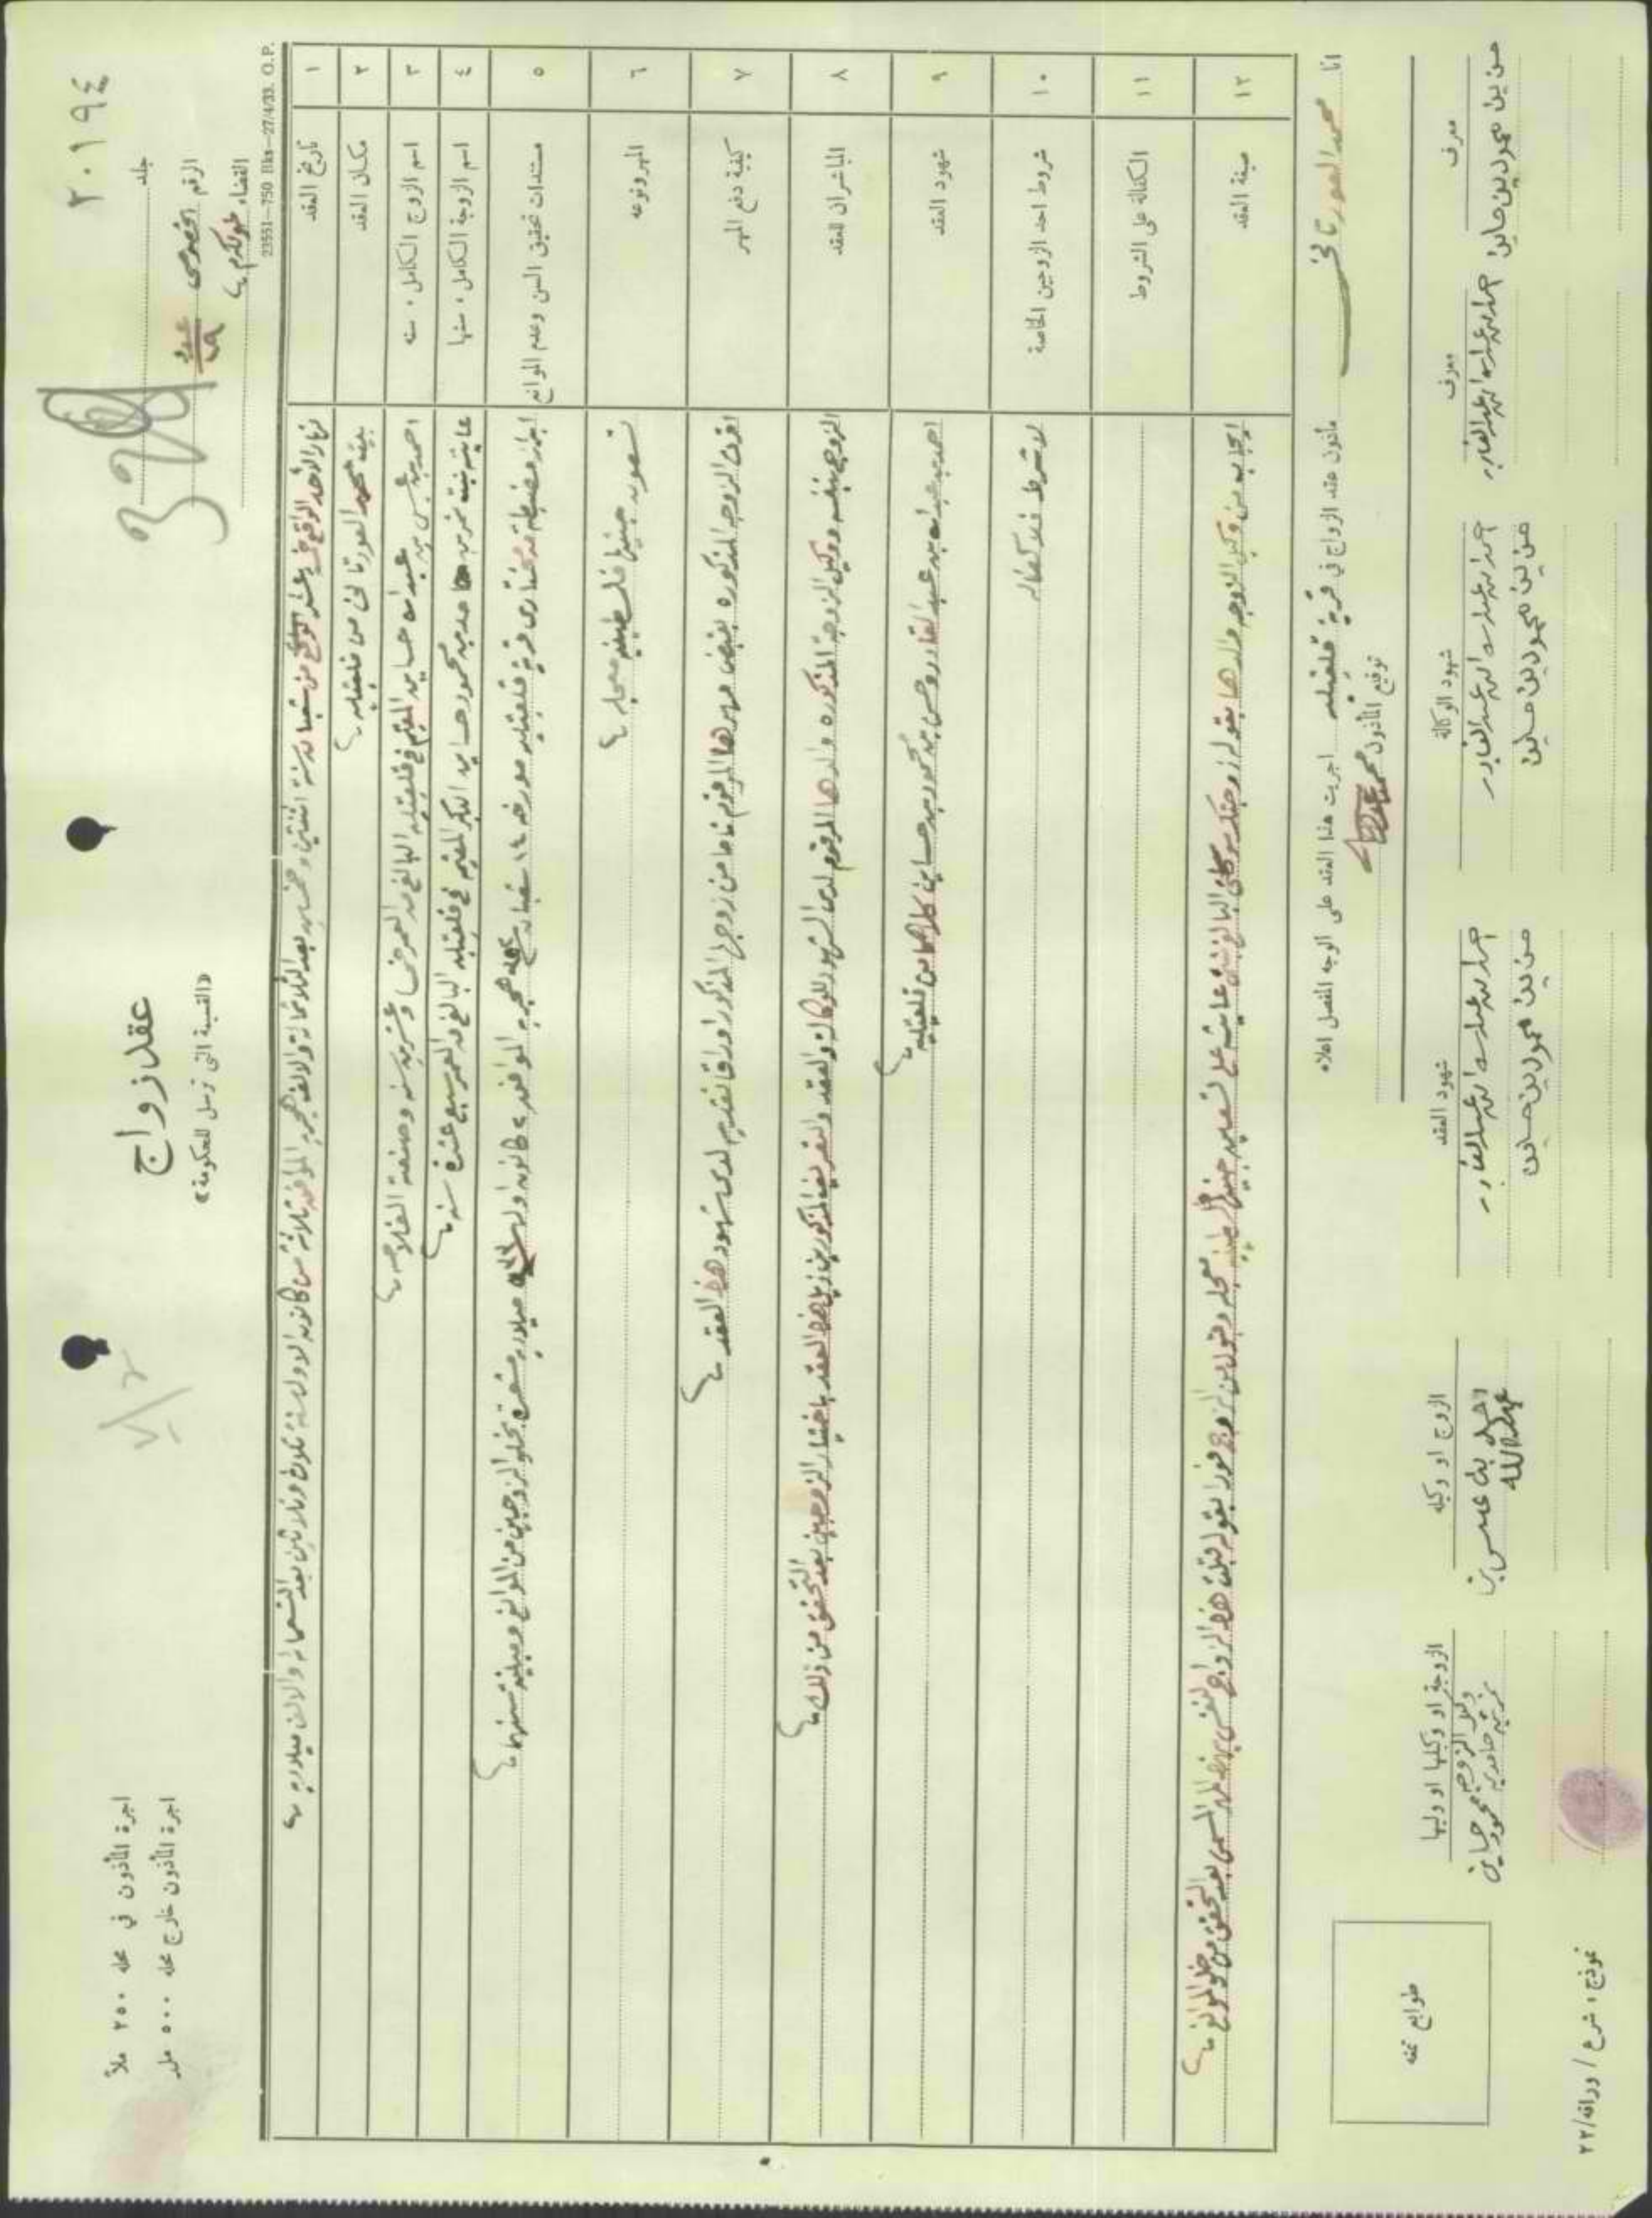 ٢٠١٩٤
جلد
الرقم الخصوصي
القضاء طولكرم
23551—750 Bks—27/4/33. G.P.
عقد زواج
«القسيمة التي ترسل للحكومة»
اجرة المأذون في محله ٢٥٠ ملاً
اجرة المأذون خارج محله ٥٠٠ مل
١ تاريخ العقد نهار الأحد الواقع في عشر من شعبان سنة اثنتين وخمسين بعد الثلاثمائة والالف هجرية الموافق ثلاثة من كانون الاول سنة ثلاث وثلاثين بعد التسعماية والالف ميلاديه
٢ مكان العقد بيت محمد العورتاني من قلقيليه
٣ اسم الزوج الكامل . سنه احمد بن عيسى بن عبدالله حساين المقيم في قلقيليه البالغ من العمر وعشرين سنه وصنعته الفلاحه
٤ اسم الزوجة الكامل . سنها عايشه بنت نمر بن حامد بن محمود حساين البكر المقيم في قلقيليه البالغ من العمر سبع عشرة سنه
٥ مستندات تحقيق السن وعدم الموانع ابراز مضبطة من مختاري قرية قلقيليه مورخه ١٤ شعبان هجريه الموافقه ٢ كانون اول ميلاديه مشعرة بخلو الزوجين من الموانع ومبلغه سنهما
٦ المهر ونوعه تسعون جنيها فلسطينيه معجله
٧ كيفية دفع المهر اقرت الزوجه المذكوره بقبض مهرها المرقوم تاما من زوجها المذكور اوراقا نقديه لدى شهود هذا العقد
٨ المباشران للعقد الزوج بنفسه ووكيل الزوجة المذكوره والدها المرقوم لدى الشهود للوكالة والعقد والتعريف المذكورين ذيل هذا العقد باختيار الزوجين بعد التحقق من ذلك
٩ شهود العقد احمد بن عبدالله بن عبدالقادر وحسن بن محمود بن حساين كلاهما من قلقيليه
١٠ شروط احد الزوجين الخاصة لا شرط فلا كفاله
١١ الكفالة على الشروط
١٢ صيغة العقد ايجاب من وكيل الزوجه والدها بقوله زوجتك موكلتي البالغ بنتي عايشه على تسعين جنيها فلسطينيه معجله وقبول من الزوج فورا بقوله قبلت هذا الزواج لنفسي بهذا المهر المسمى بعد التحقق من خلو الموانع
انا محمد العورتاني مأذون عقد الزواج في قرية قلقيليه اجريت هذا العقد على الوجه المفصل اعلاه
توقيع المأذون
معرف
حسن بن محمود بن حساين
معرف
احمد بن عبدالله بن عبدالقادر
شهود الوكالة
احمد بن عبدالله بن عبدالقادر
حسن بن محمود بن حساين
شهود العقد
احمد بن عبدالله بن عبدالقادر
حسن بن محمود بن حساين
الزوج او وكيله
احمد بن عيسى بن
عبدالله
الزوجة او وكيلها او وليها
وكيل الزوجه
نمر بن حامد بن
محمود حساين
طوابع تمغه
نموذج ١ شرع / ورراقه/٢٢